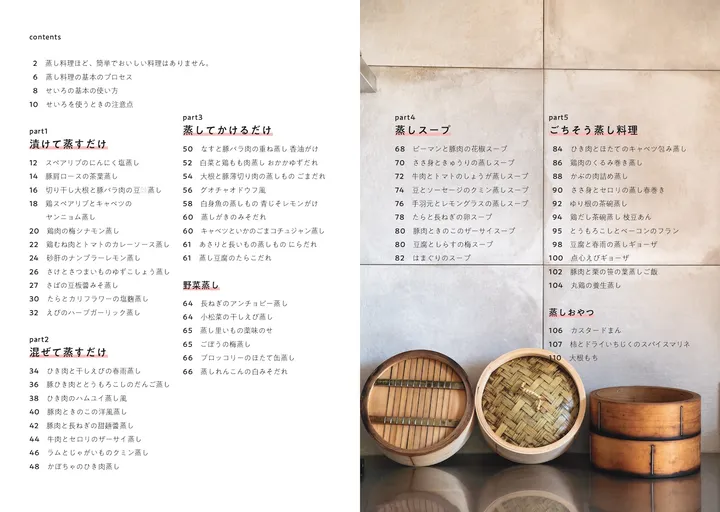 contents
2 蒸し料理ほど、簡単でおいしい料理はありません。
6 蒸し料理の基本のプロセス
8 せいろの基本の使い方
10 せいろを使うときの注意点
part1
漬けて蒸すだけ
12 スペアリブのにんにく塩蒸し
14 豚肩ロースの茶葉蒸し
16 切り干し大根と豚バラ肉の豆豉蒸し
18 鶏スペアリブとキャベツの
ヤンニョム蒸し
20 鶏肉の梅シナモン蒸し
22 鶏むね肉とトマトのカレーソース蒸し
24 砂肝のナンプラーレモン蒸し
26 さけとさつまいものゆずこしょう蒸し
27 さばの豆板醬みそ蒸し
30 たらとカリフラワーの塩麴蒸し
32 えびのハーブガーリック蒸し
part2
混ぜて蒸すだけ
34 ひき肉と干しえびの春雨蒸し
36 豚ひき肉ととうもろこしのだんご蒸し
38 ひき肉のハムユイ蒸し風
40 豚肉ときのこの洋風蒸し
42 豚肉と長ねぎの甜麺醬蒸し
44 牛肉とセロリのザーサイ蒸し
46 ラムとじゃがいものクミン蒸し
48 かぼちゃのひき肉蒸し
part3
蒸してかけるだけ
50 なすと豚バラ肉の重ね蒸し 香油がけ
52 白菜と鶏もも肉蒸し おかかゆずだれ
54 大根と豚薄切り肉の蒸しもの ごまだれ
56 グオチャオドウフ風
58 白身魚の蒸しもの 青じそレモンがけ
60 蒸しがきのみそだれ
60 キャベツといかのごまコチュジャン蒸し
61 あさりと長いもの蒸しもの にらだれ
61 蒸し豆腐のたらこだれ
野菜蒸し
64 長ねぎのアンチョビー蒸し
64 小松菜の干しえび蒸し
65 蒸し里いもの薬味のせ
65 ごぼうの梅蒸し
66 ブロッコリーのほたて缶蒸し
66 蒸しれんこんの白みそだれ
part4
蒸しスープ
68 ピーマンと豚肉の花椒スープ
70 ささ身ときゅうりの蒸しスープ
72 牛肉とトマトのしょうが蒸しスープ
74 豆とソーセージのクミン蒸しスープ
76 手羽元とレモングラスの蒸しスープ
78 たらと長ねぎの卵スープ
80 豚肉ときのこのザーサイスープ
80 豆腐としらすの梅スープ
82 はまぐりのスープ
part5
ごちそう蒸し料理
84 ひき肉とほたてのキャベツ包み蒸し
86 鶏肉のくるみ巻き蒸し
88 かぶの肉詰め蒸し
90 ささ身とセロリの蒸し春巻き
92 ゆり根の茶碗蒸し
94 鶏だし茶碗蒸し 枝豆あん
95 とうもろこしとベーコンのフラン
98 豆腐と春雨の蒸しギョーザ
100 点心えびギョーザ
102 豚肉と栗の笹の葉蒸しご飯
104 丸鶏の養生蒸し
蒸しおやつ
106 カスタードまん
107 柿とドライいちじくのスパイスマリネ
110 大根もち